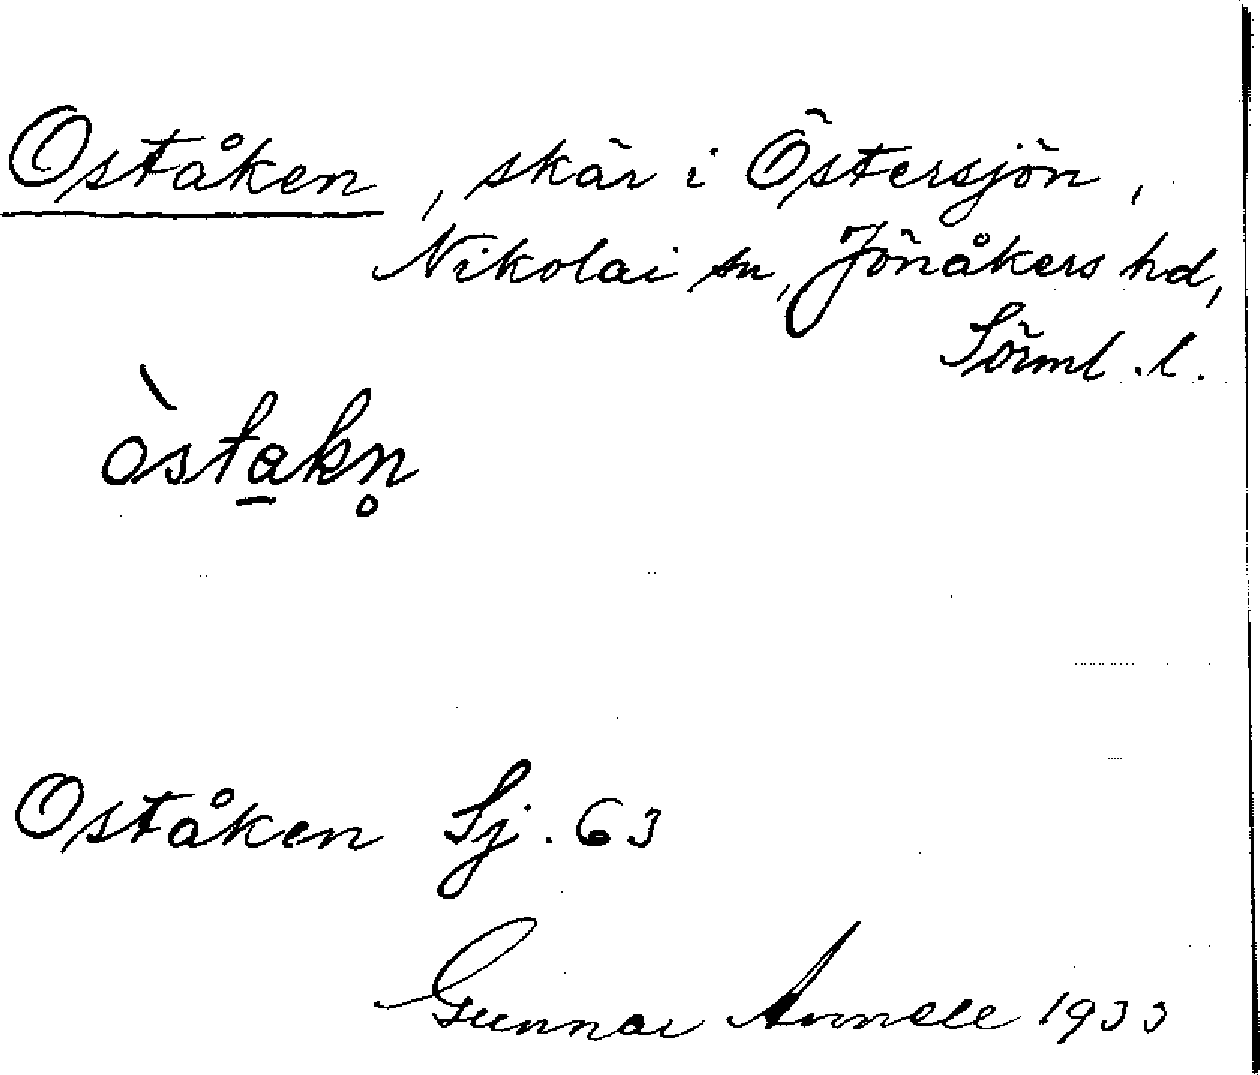 Oståken, skär i Östersjön,
Nikolai sn, Jönåkers hd,
Sörml. l.
òstakn̥
Oståken Sj. 63
Gunnar 1933